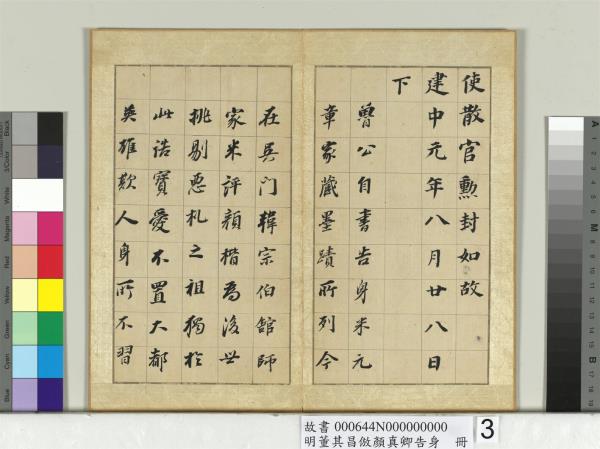 使散官勳封如故
建中元年八月廿八日
下
魯公自書告身米元
章家藏墨蹟所列今
在吳門韓宗伯館師
家米評顏楷為後世
挑剔惡札之祖獨於
此誥寶愛不置大都
英雄欺人身所不習
故書 000644N000000000
明董其昌倣顏真卿告身 冊
3